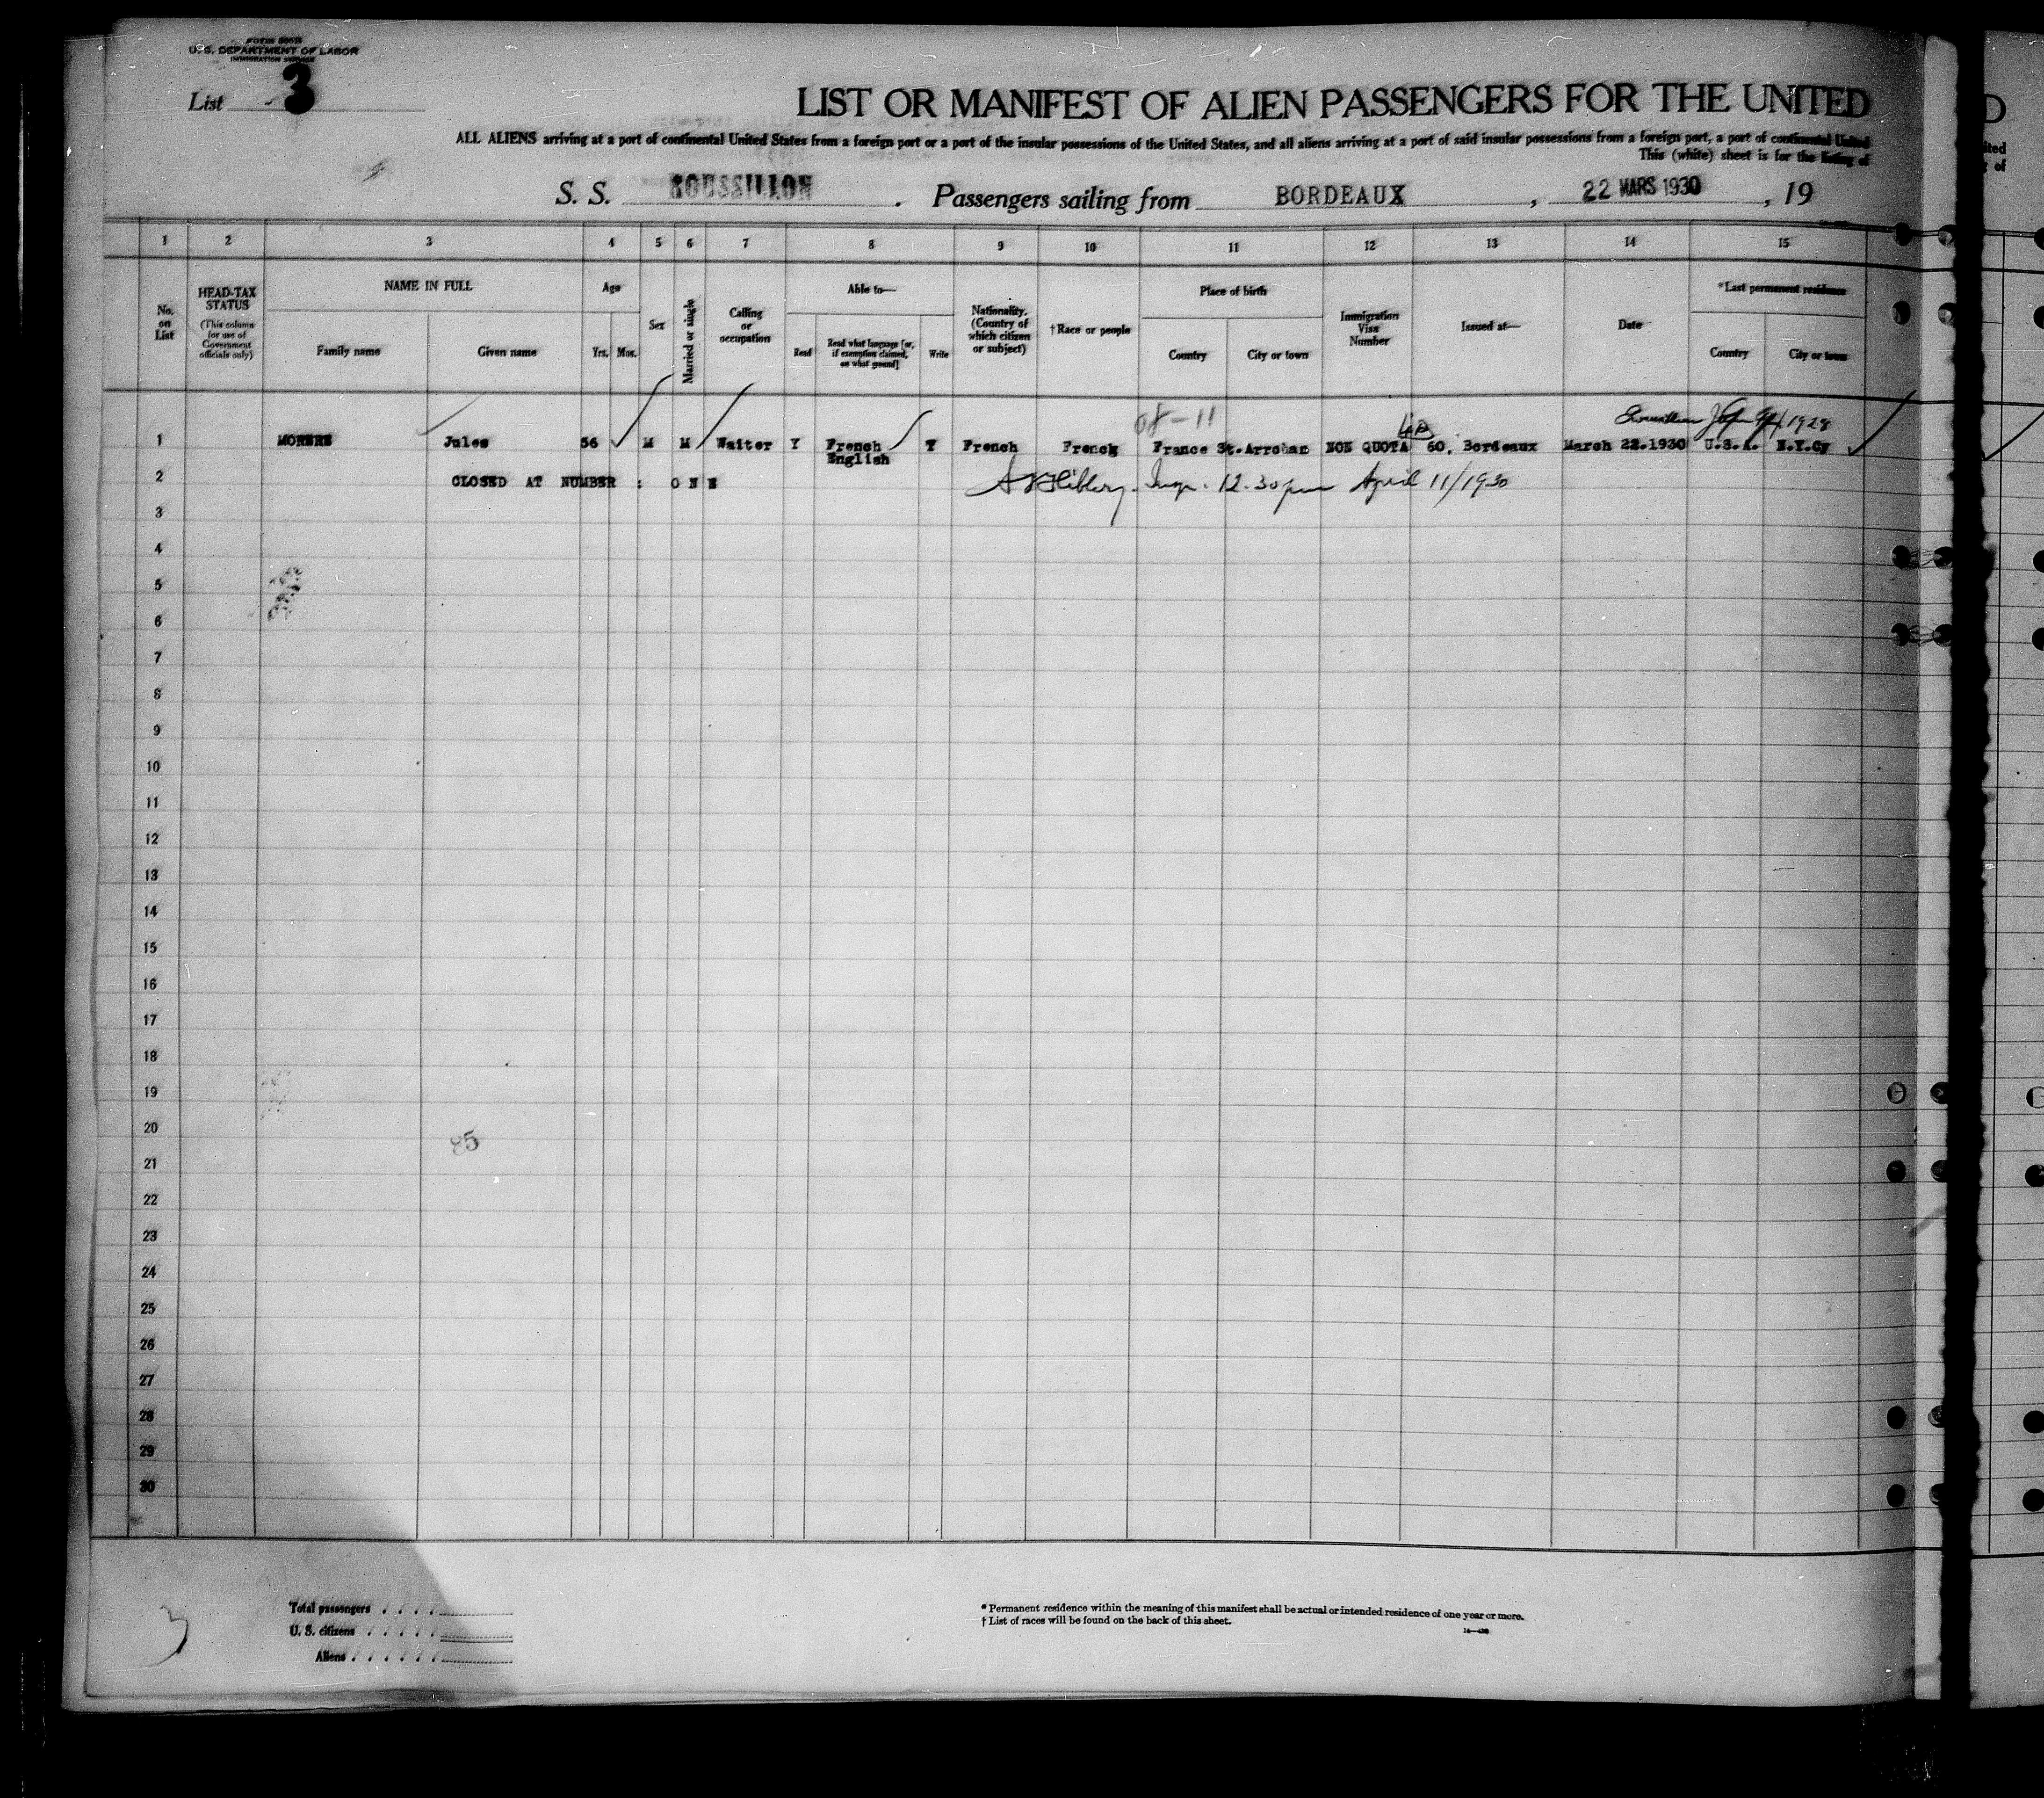 U. S. DEPARTMENT OF LABOR
IMMIGRATION SERVICE
List 3
LIST OR MANIFEST OF ALIEN PASSENGERS FOR THE UNITED
ALL ALIENS arriving at a port of continental United States from a foreign port or a port of the insular possessions of the United States, and all aliens arriving at a port of said insular possessions from a foreign port, a port of continental United
This (white) sheet is for the listing of
S. S. ROUSSILLON . Passengers sailing from BORDEAUX , 22 MARS 1930 , 19
1 2 3 4 5 6 7 8 9 10 11 12 13 14 15
No. on List
HEAD-TAX STATUS
(This column for use of Government officials only)
NAME IN FULL
Family name
Given name
Age
Yrs. Mos.
Sex
Married or single
Calling or occupation
Able to—
Read
Read what language [or, if exemption claimed, on what ground]
Write
Nationality. (Country of which citizen or subject)
†Race or people
Place of birth
Country
City or town
Immigration Visa Number
Issued at—
Date
*Last permanent residence
Country
City or town
08-11
1928
1 MORERE Jules 56 M M Waiter Y French Y French French France St. NON QUOTA 60, Bordeaux March 22.1930 U.S.A. N.Y.Cy
English
2 CLOSED AT NUMBER : ONE Insp. 12.30 pm April 11/1930
3
4
5
6
7
8
9
10
11
12
13
14
15
16
17
18
19
20
85
21
22
23
24
25
26
27
28
29
30
3
Total passengers
U. S. citizens
Aliens
* Permanent residence within the meaning of this manifest shall be actual or intended residence of one year or more.
† List of races will be found on the back of this sheet.